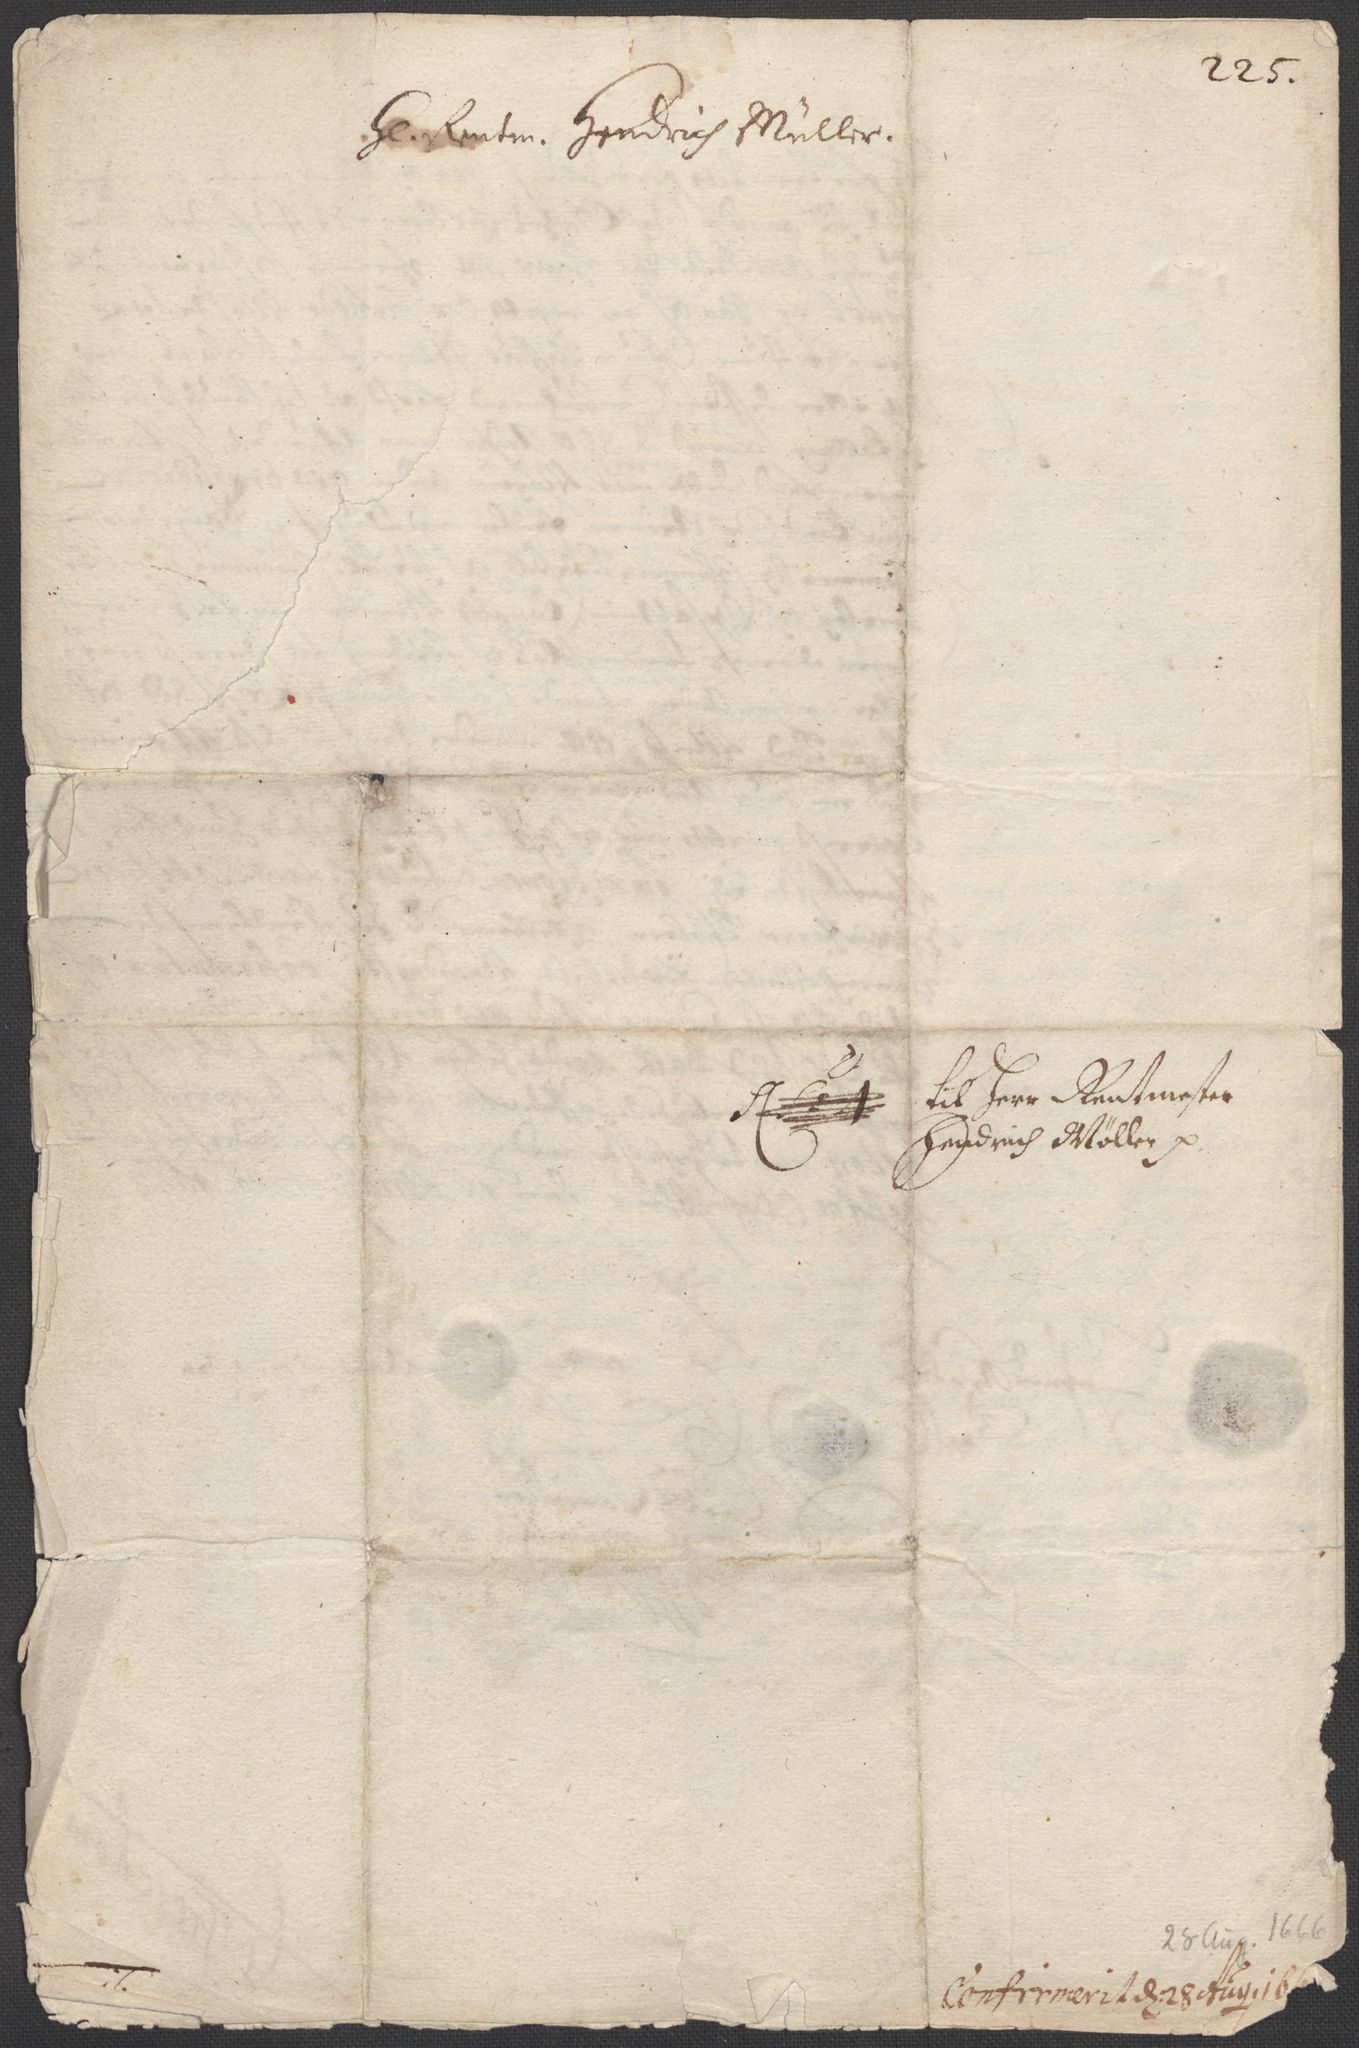 225.
Hl. Rentm. Hendrich Müller.
til Herr Rentmester
Hendrich Møller p
28 Aug. 1666
Confirmerit d. 28 Aug. 166